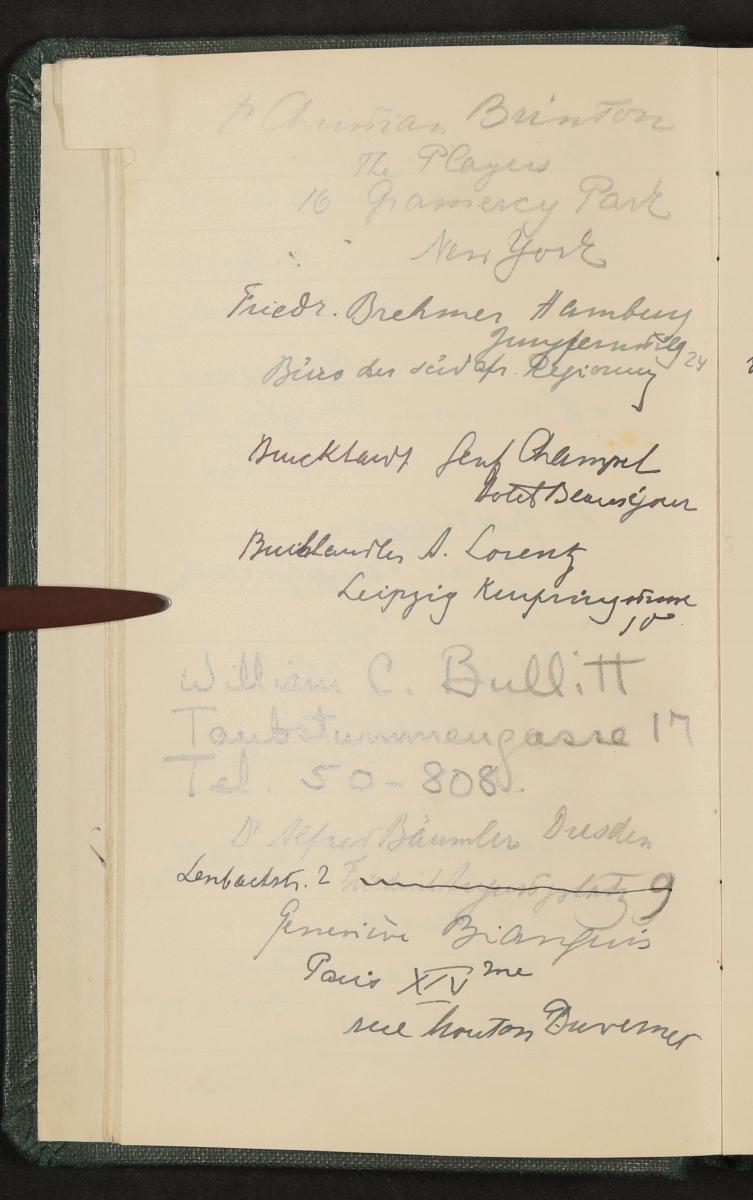 Dr Christian Brinton
The Players
16 Gramercy Park
New York
Friedr. Brehmer Hamburg
Jungfernstieg 24
Büro der südafr. Regierung
Burckhardt Genf Champel
Hotel Beauséjour
Buchhandler A. Lorentz
Leipzig Kurprinzstrasse
10
William C. Bullitt
Taubstummengasse 17
Tel. 50-808.
Dr Alfred Bäumler Dresden
Lenbachstr. 2 9
Geneviève Bianquis
Paris XIV me
rue Mouton Duvernet